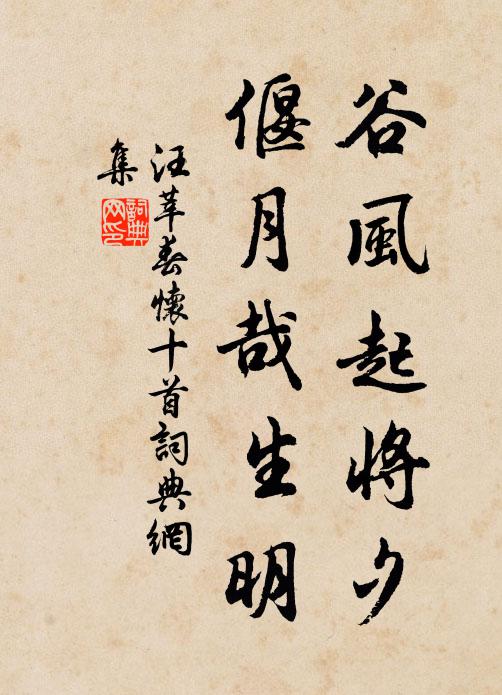 谷風起將夕
偃月哉生明
汪莘春懷十首詞典網
集
詞典
網印